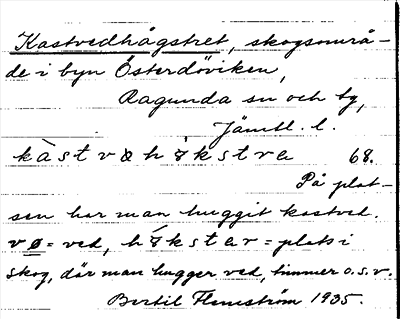 Kastvedhågstret, skogsområ-
de i byn Österdöviken,
Ragunda sn och tg,
Jämtl. l.
kàstvøhŏ́kstra 68.
På plat-
sen har man huggit kastved.
vø = ved, hŏ́kster = plats i
skog, där man hugger ved, timmer o.s.v.
Bertil Flemström 1935.